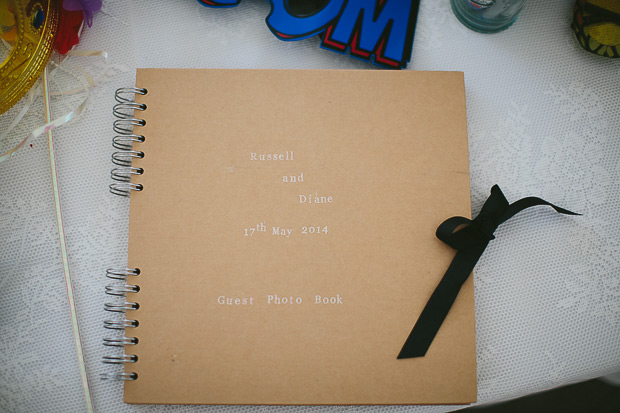 OM
Russell
and
Diane
17th May 2014
Guest Photo Book